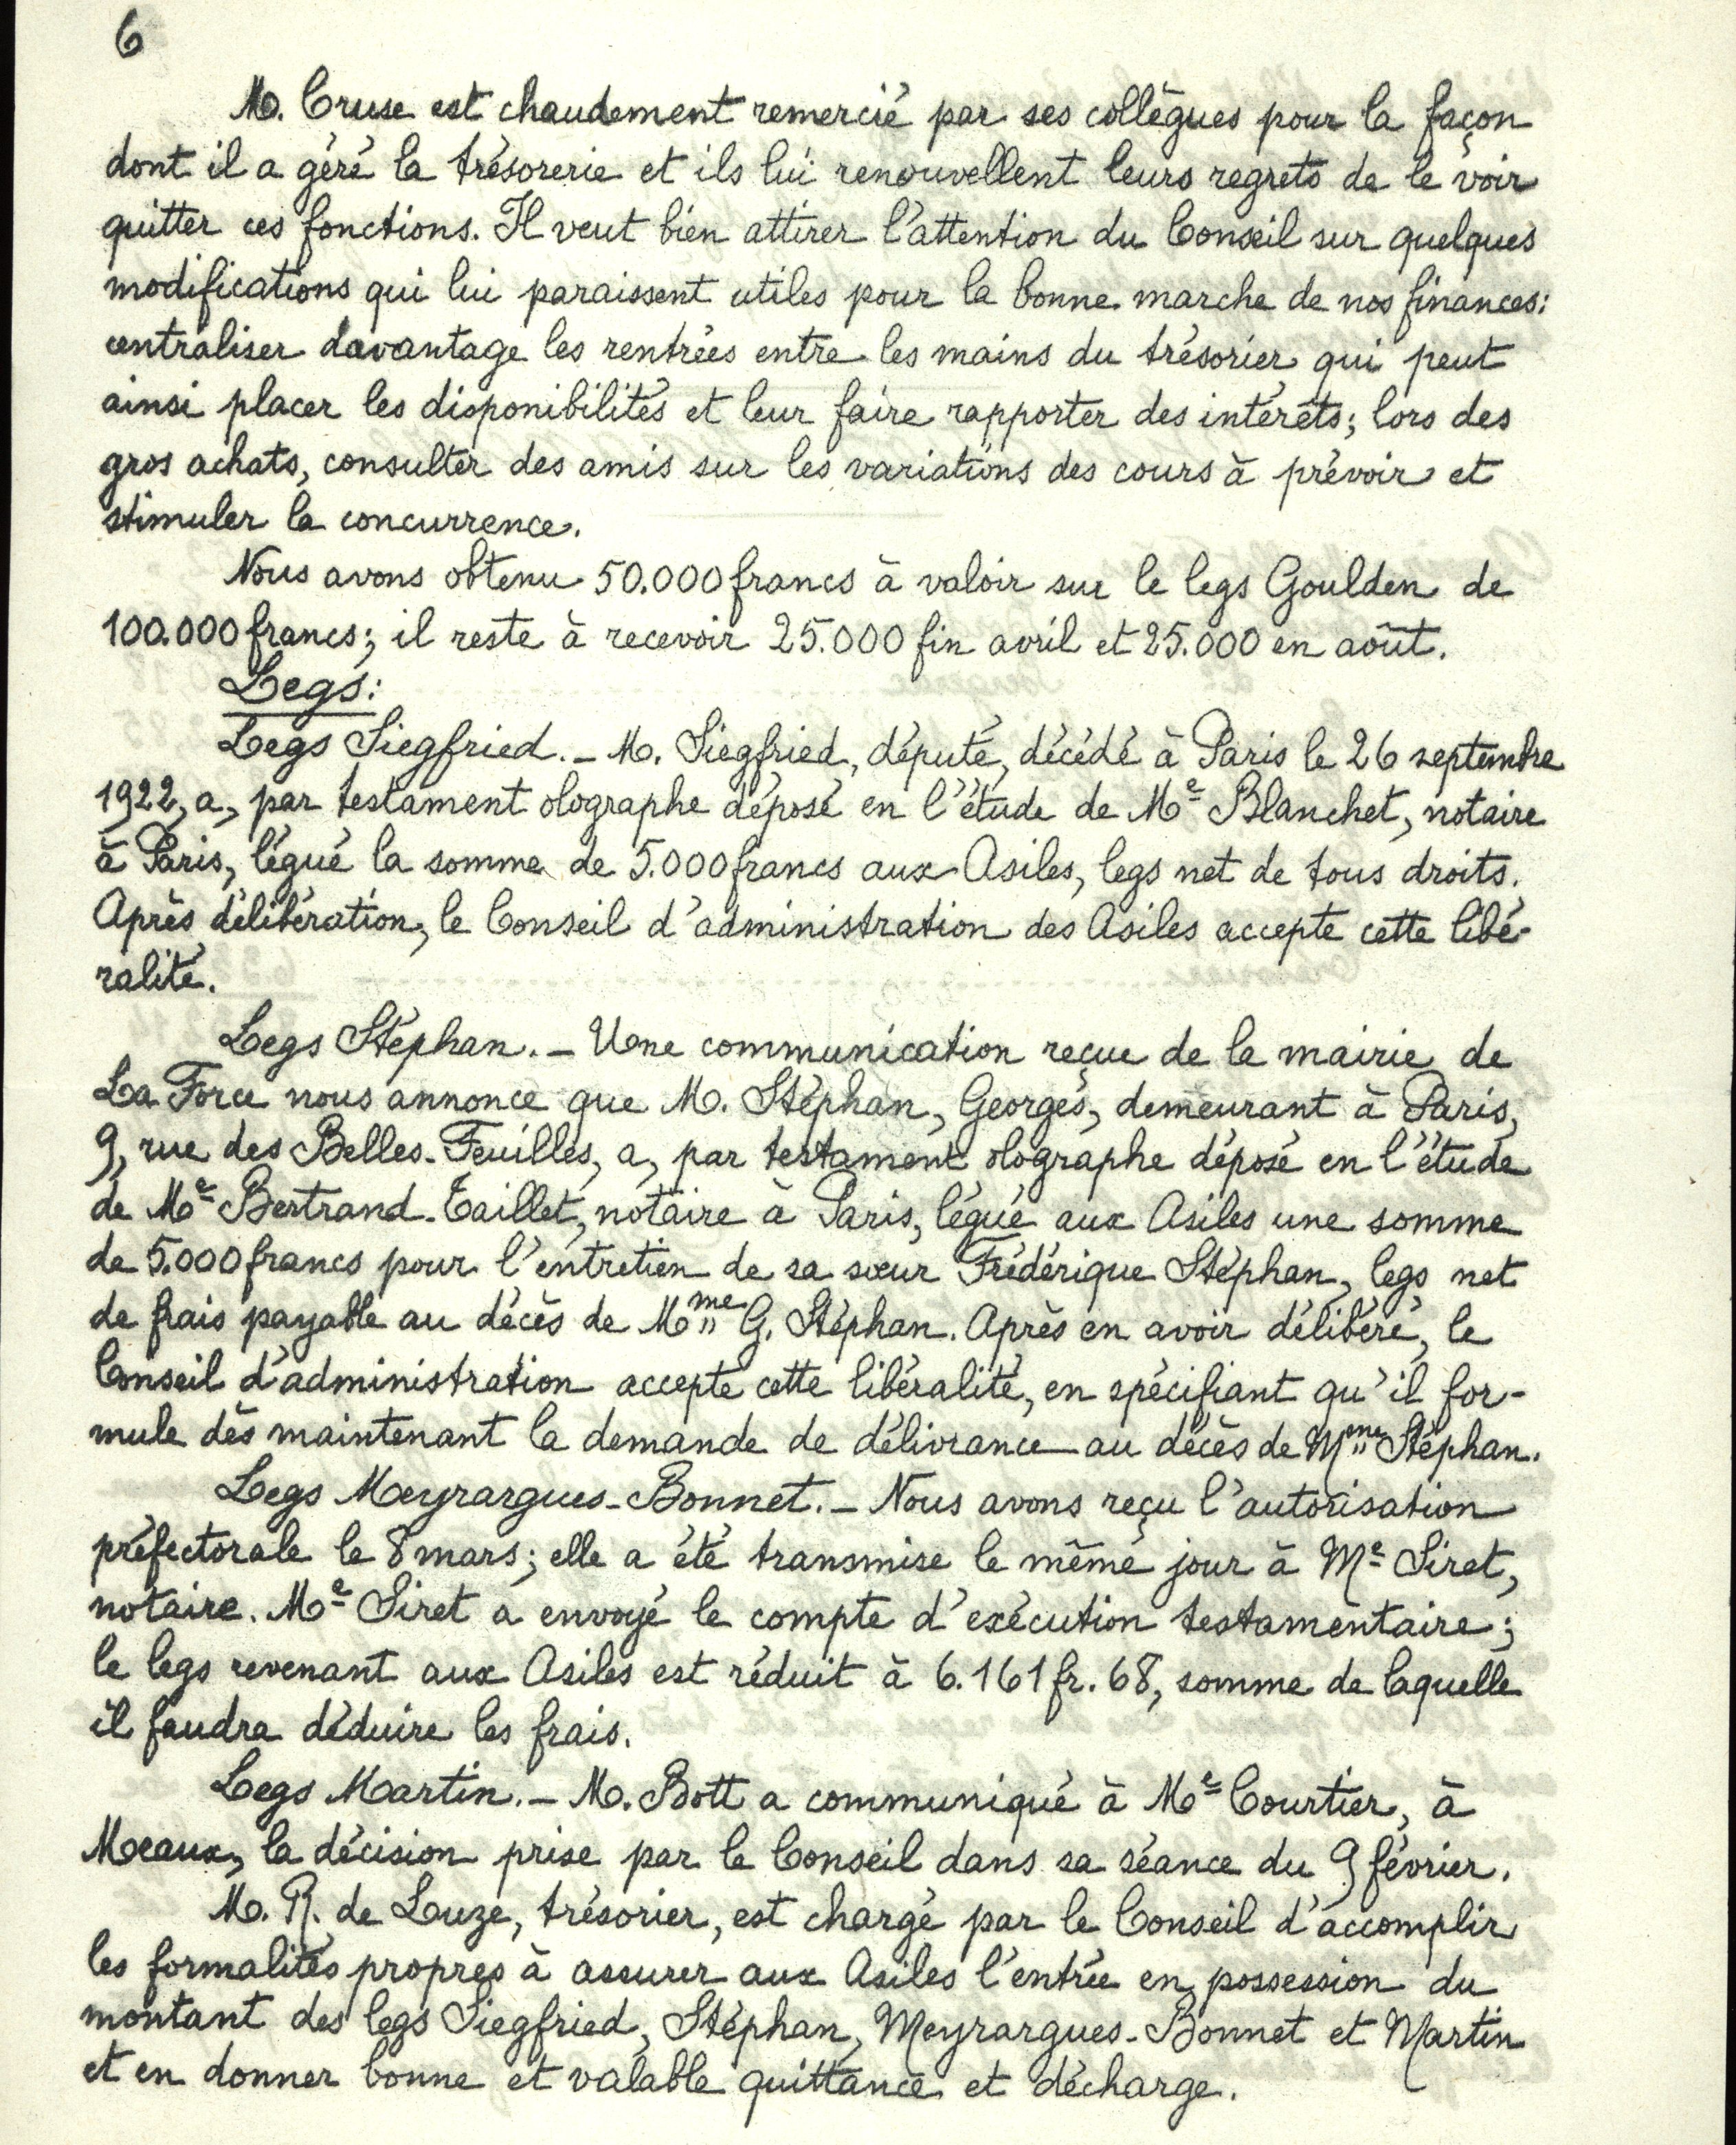 6
M. Cruse est chaudement remercié par ses collègues pour la façon
dont il a géré la trésorerie et ils lui renouvellent leurs regrets de le voir
quitter ces fonctions. Il veut bien attirer l'attention du Conseil sur quelques
modifications qui lui paraissent utiles pour la bonne marche de nos finances:
centraliser davantage les rentrées entre les mains du trésorier qui peut
ainsi placer les disponibilités et leur faire rapporter des intérêts; lors des
gros achats, consulter des amis sur les variations des cours à prévoir et
stimuler la concurrence.
Nous avons obtenu 50.000 francs à valoir sur le legs Goulden de
100.000 francs; il reste à recevoir 25.000 fin avril et 25.000 en août.
Legs:
Legs Siegfried. _ M. Siegfried, député, décédé à Paris le 26 septembre
1922, a, par testament olographe déposé en l'étude de Me Blanchet, notaire
à Paris, légué la somme de 5.000 francs aux Asiles, legs net de tous droits.
Après délibération, le Conseil d'administration des Asiles accepte cette libé-
ralité.
Legs Stéphan. _ Une communication reçue de la mairie de
La Force nous annonce que M. Stéphan, Georges, demeurant à Paris,
9, rue des Belles-Feuilles, a, par testament olographe déposé en l'étude
de Me Bertrand-Taillet, notaire à Paris, légué aux Asiles une somme
de 5.000 francs pour l'entretien de sa sœur Frédérique Stéphan, legs net
de frais payable au décès de Mme G. Stéphan. Après en avoir délibéré, le
Conseil d'administration accepte cette libéralité, en spécifiant qu'il for-
mule dès maintenant la demande de délivrance au décès de Mme Stéphan.
Legs Meyrargues-Bonnet. _ Nous avons reçu l'autorisation
préfectorale le 8 mars; elle a été transmise le même jour à Me Siret,
notaire. Me Siret a envoyé le compte d'exécution testamentaire;
le legs revenant aux Asiles est réduit à 6.161 fr. 68, somme de laquelle
il faudra déduire les frais.
Legs Martin. _ M. Bott a communiqué à Me Courtier, à
Meaux, la décision prise par le Conseil dans sa séance du 9 février.
M. R. de Luze, trésorier, est chargé par le Conseil d'accomplir
les formalités propres à assurer aux Asiles l'entrée en possession du
montant des legs Siegfried, Stéphan, Meyrargues-Bonnet et Martin
et en donner bonne et valable quittance et décharge.